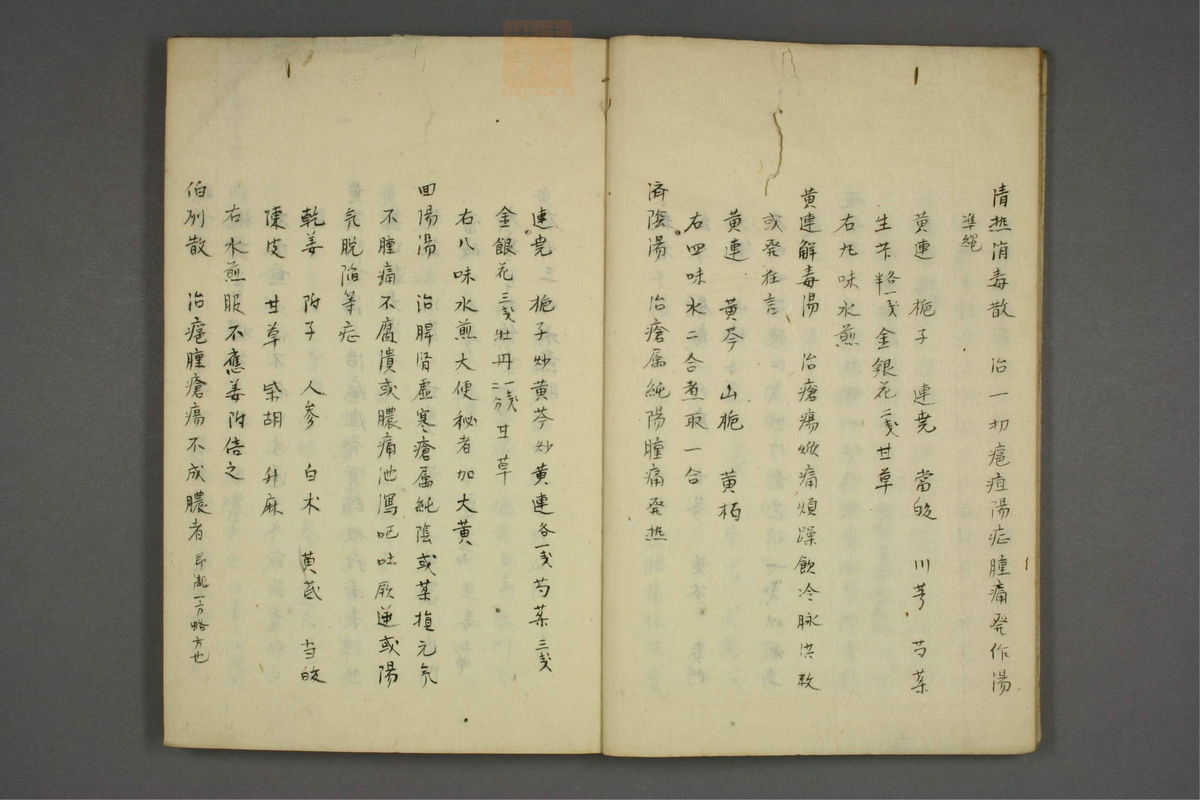 清热消毒散　治一切癰疽陽症腫痛発作湯
準繩
黄連　梔子　連尭　當皈　川芎　芍薬
生芐各一戔半金銀花二戔甘草
右九味水煎
黄連解毒湯　治瘡瘍焮痛煩躁飲冷脉洪数
或発狂言
黄連　黄芩　山梔　黄栢
右四味水二合煮取一合
済陰湯　治瘡属純陽腫痛発热
連尭　梔子炒黄芩炒黄連各一戔芍薬三戔
金銀花三戔牡丹一戔二分甘草
右八味水煎大便秘者加大黄
回陽湯　治脾腎虚寒瘡属純陰或薬損元気
不腫痛不腐潰或膿痛泄瀉呕吐厥逆或陽
気脱陥等症
乾姜　附子　人参　白术　黄茋　当皈
陳皮　甘草　柴胡　升麻
右水煎服不應姜附倍之
伯州散　治癰腫瘡瘍不成膿者